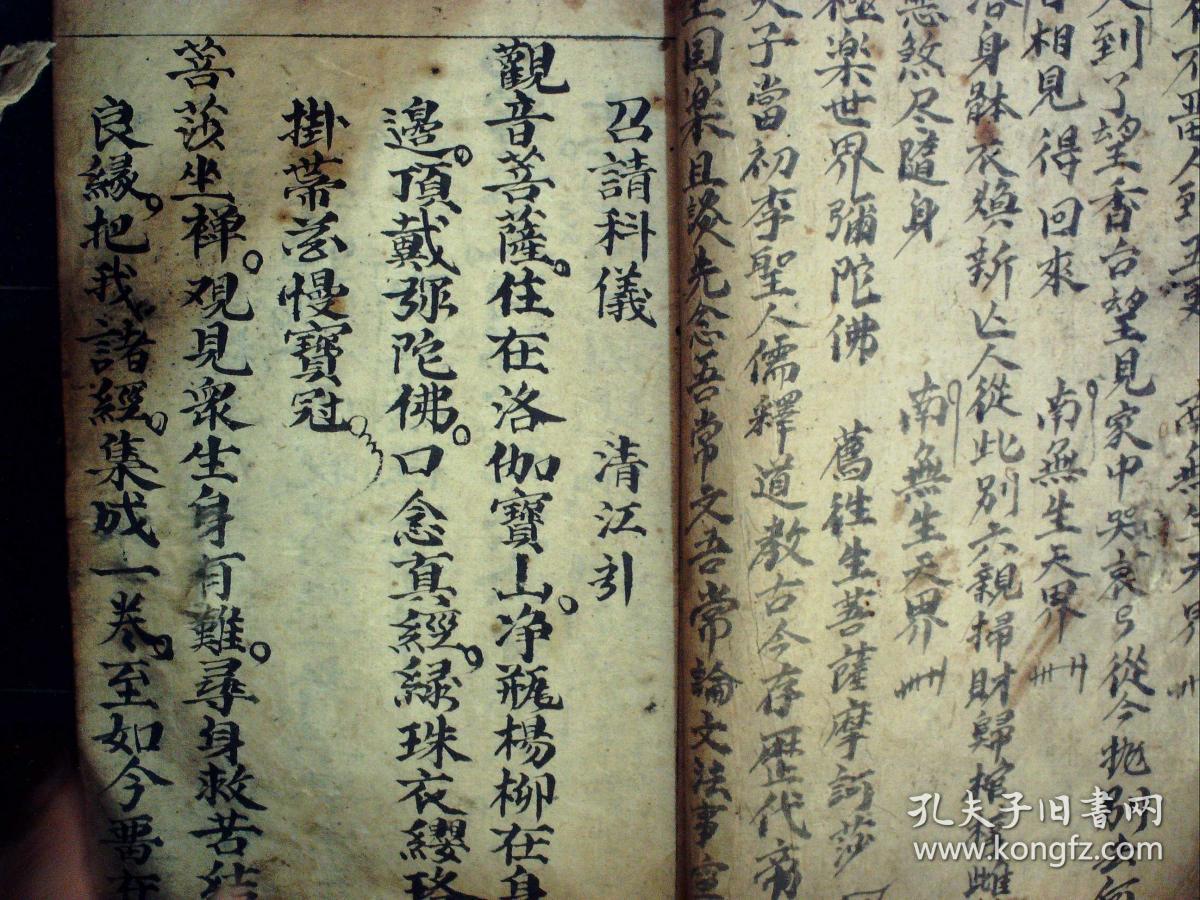 到了望香台望見家中哭哀哀從今拋別
相見得回來 南無生天界
身躰衣換新亡人從此別六親掃財歸
惡煞尽隨身 南無生天界
極楽世界彌陀佛 薦徃生菩薩摩訶莎
天子當初李聖人儒釋道教古今存歴代帝
王国楽且談先念吾常文吾常論文法事
召請科儀 清江引
觀音菩薩住在洛伽寶山净瓶楊柳在身
邊頂戴弥陀佛口念真經緑珠衣纓珞
掛帶慢寶冠
菩莎坐禅观見衆生身有難尋身救苦結
良緣把我諸經集成一卷至如今畱在
孔夫子旧书网
www.kongfz.com